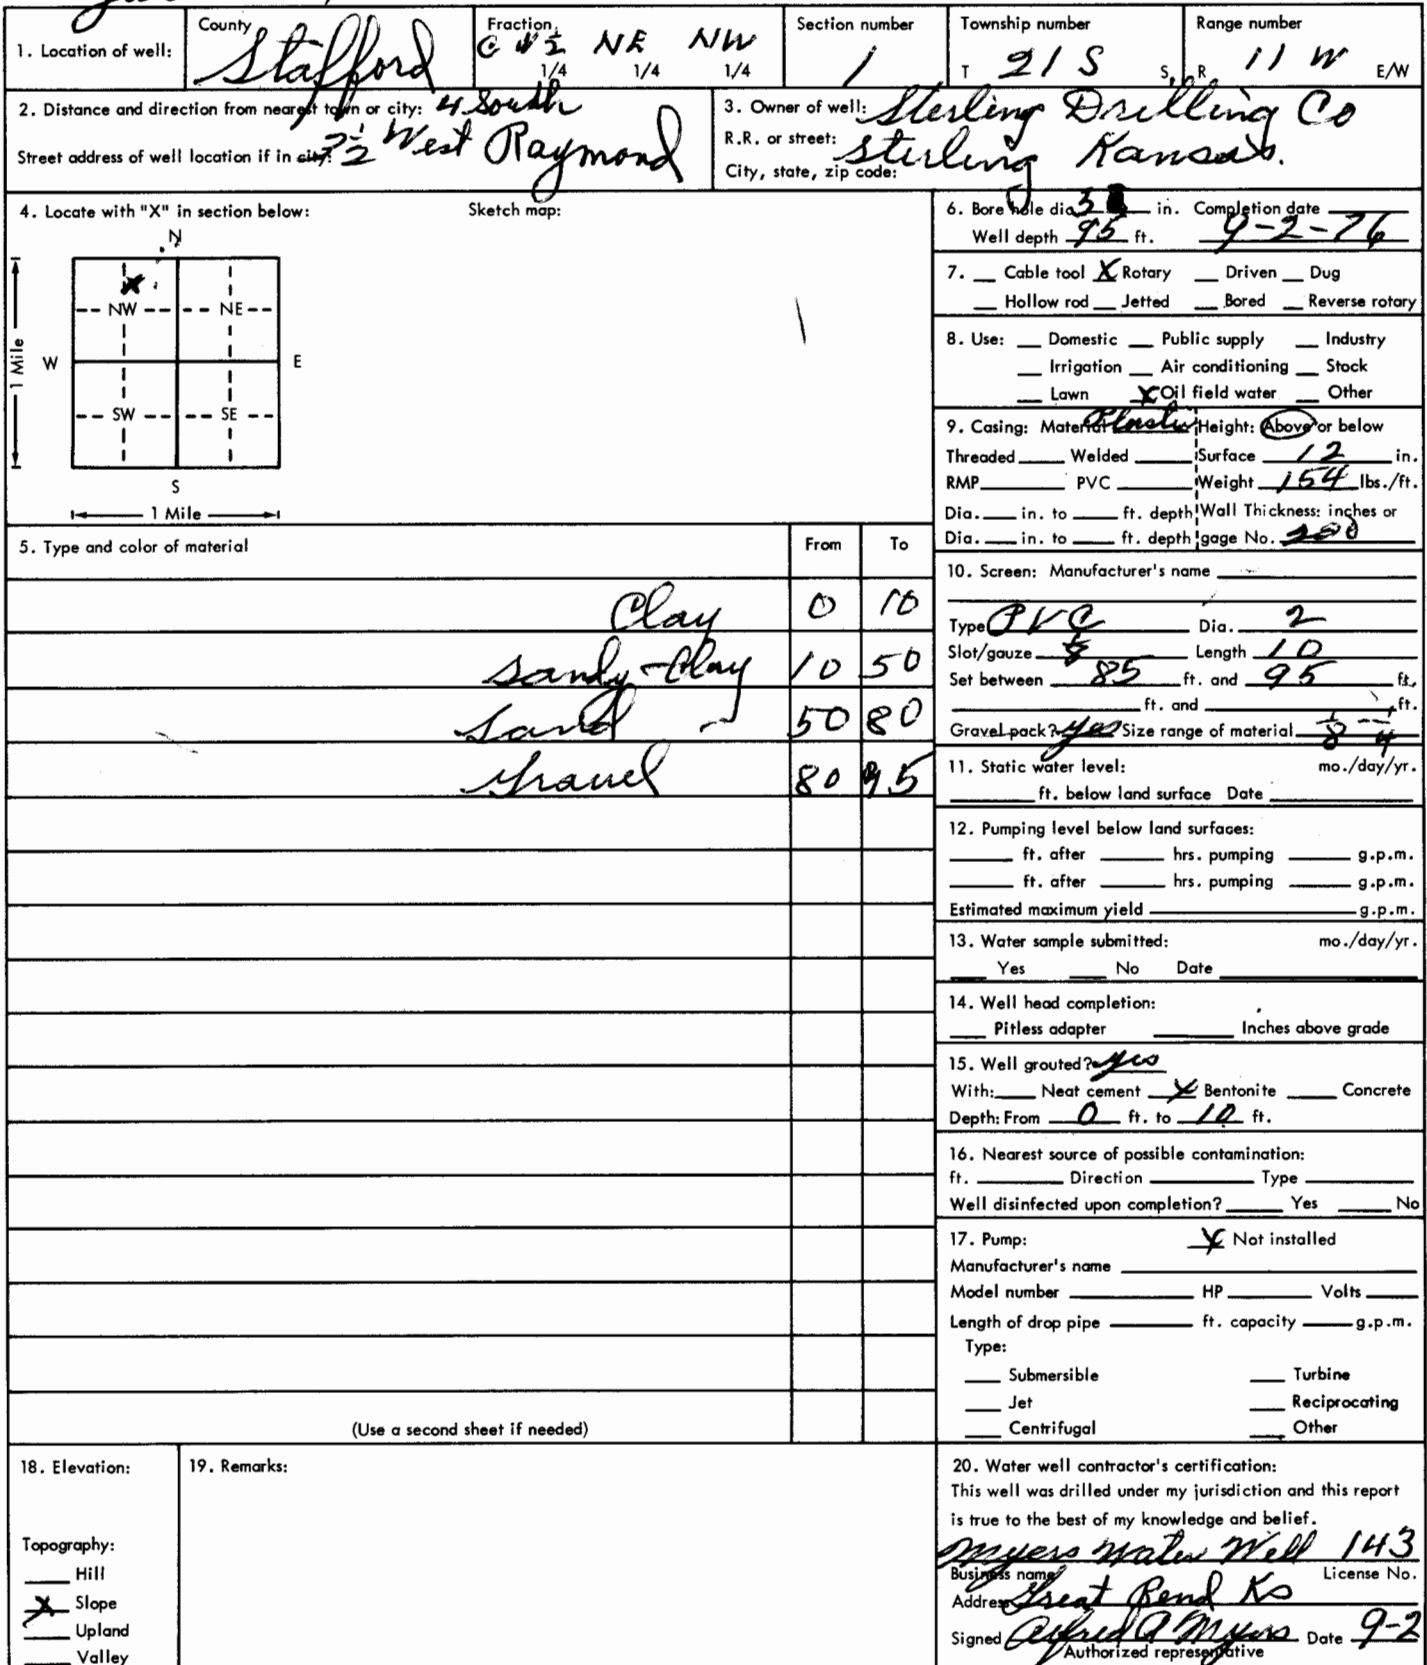 1. Location of well: County Stafford Fraction C W½ NE NW 1/4 1/4 1/4 Section number 1 Township number T 21 S S. Range number R 11 W E/W
2. Distance and direction from nearest town or city: 4 South
Street address of well location if in city: 2½ West Raymond
3. Owner of well: Sterling Drilling Co
R.R. or street: Sterling Kansas.
City, state, zip code:
4. Locate with "X" in section below: Sketch map:
N
X
NW NE
W E
1 Mile
SW SE
S
1 Mile
5. Type and color of material From To
Clay 0 10
Sandy-Clay 10 50
Sand 50 80
Gravel 80 95
(Use a second sheet if needed)
6. Bore hole dia. in. Completion date
Well depth 95 ft. 9-2-76
7. __ Cable tool X Rotary __ Driven __ Dug
__ Hollow rod __ Jetted __ Bored __ Reverse rotary
8. Use: __ Domestic __ Public supply __ Industry
__ Irrigation __ Air conditioning __ Stock
__ Lawn X Oil field water __ Other
9. Casing: Material Plastic Height: Above or below
Threaded ____ Welded ____ Surface 12 in.
RMP ____ PVC ____ Weight 154 lbs./ft.
Dia. ___ in. to ___ ft. depth Wall Thickness: inches or
Dia. ___ in. to ___ ft. depth gage No. 200
10. Screen: Manufacturer's name ____
Type PVC Dia. 2
Slot/gauze Length 10
Set between 85 ft. and 95 ft.
____ ft. and ____ ft.
Gravel pack? Yes Size range of material 1/8 - 1/4
11. Static water level: mo./day/yr.
____ ft. below land surface Date ____
12. Pumping level below land surfaces:
____ ft. after ____ hrs. pumping ____ g.p.m.
____ ft. after ____ hrs. pumping ____ g.p.m.
Estimated maximum yield ____ g.p.m.
13. Water sample submitted: mo./day/yr.
___ Yes ___ No Date ____
14. Well head completion:
___ Pitless adapter ____ Inches above grade
15. Well grouted? yes
With: ___ Neat cement X Bentonite ___ Concrete
Depth: From 0 ft. to 10 ft.
16. Nearest source of possible contamination:
ft. ____ Direction ____ Type ____
Well disinfected upon completion? ____ Yes ____ No
17. Pump: X Not installed
Manufacturer's name ____
Model number ____ HP ____ Volts ____
Length of drop pipe ____ ft. capacity ____ g.p.m.
Type:
___ Submersible ___ Turbine
___ Jet ___ Reciprocating
___ Centrifugal ___ Other
18. Elevation:
Topography:
___ Hill
X Slope
___ Upland
___ Valley
19. Remarks:
20. Water well contractor's certification:
This well was drilled under my jurisdiction and this report
is true to the best of my knowledge and belief.
Myers Water Well 143
Business name License No.
Address Great Bend Ks
Signed Alfred A Myers Date 9-2
Authorized representative